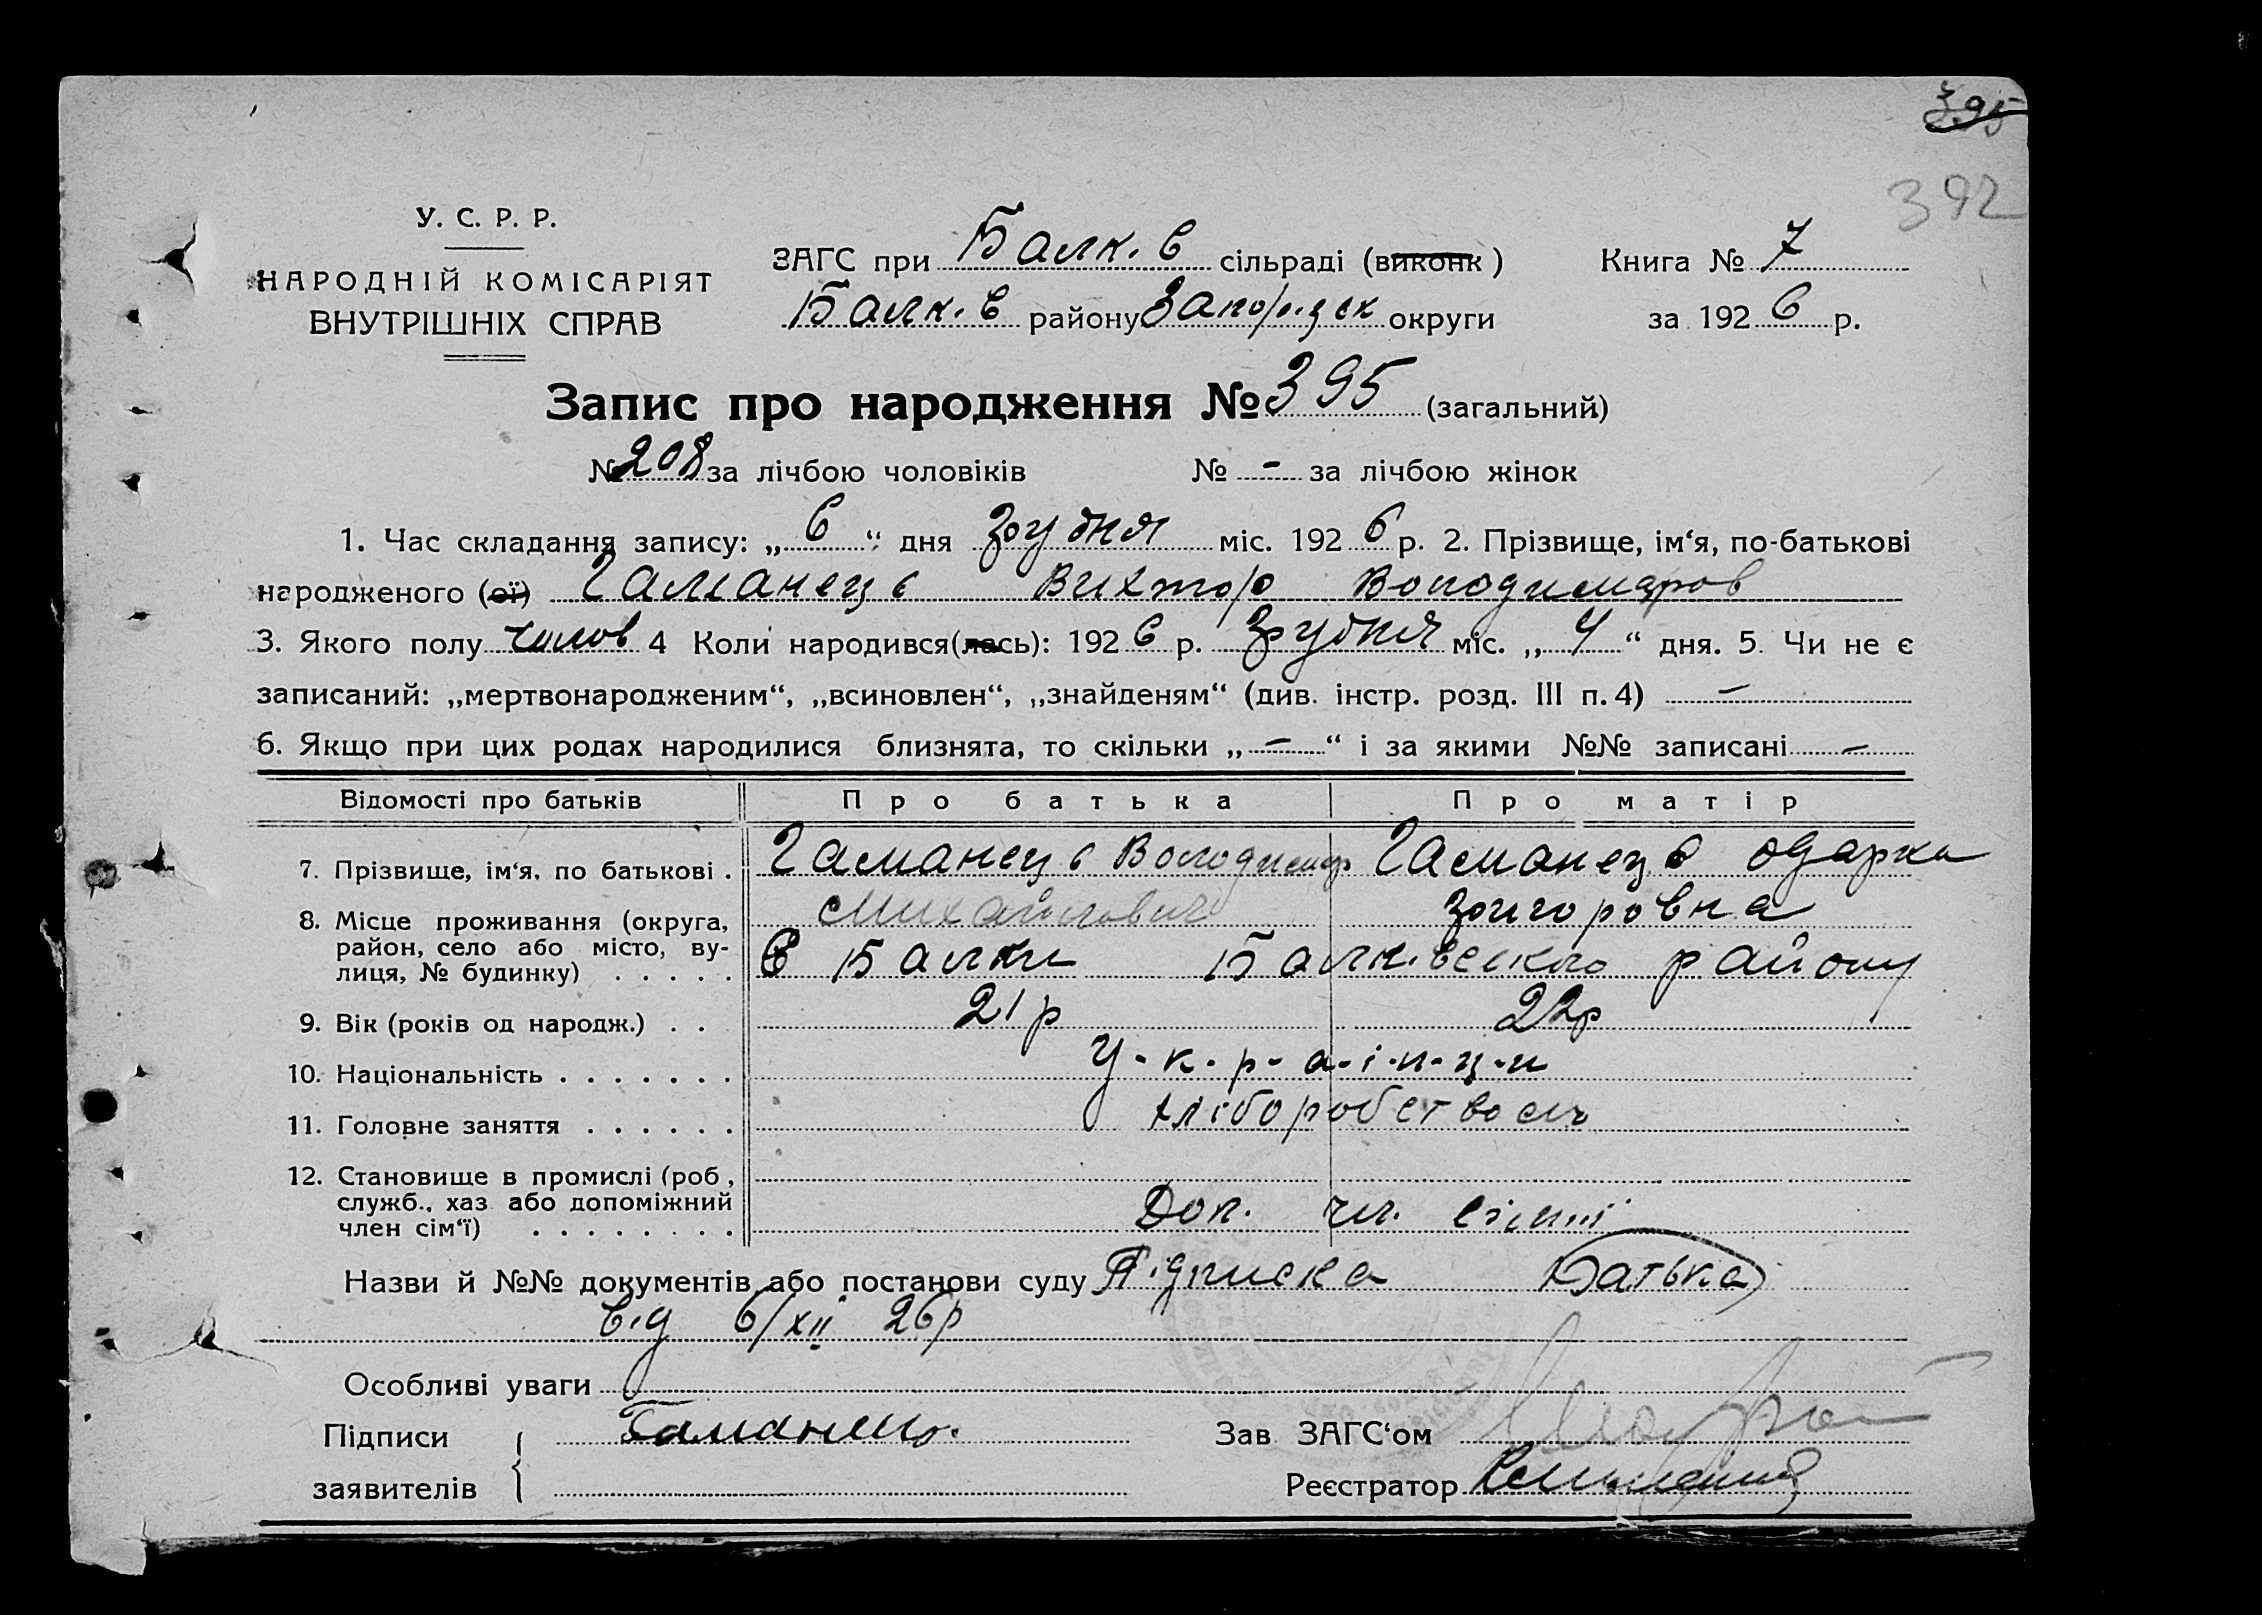 395
392
У. С. Р. Р.
НАРОДНІЙ КОМІСАРІЯТ
ВНУТРІШНІХ СПРАВ
ЗАГС при Балк. в сільраді (виконк)
Балк. в району Запорізск округи
Книга № 7
за 1926 р.
Запис про народження № 395 (загальний)
№ 208 за лічбою чоловіків № - за лічбою жінок
1. Час складання запису: „6“ дня грудня міс. 1926 р. 2. Прізвище, ім‘я, по-батькові
народженого (ої) Гаманець Віктор Володимиров
3. Якого полу чолов 4 Коли народився(лась): 1926 р. грудня міс. „4“ дня. 5. Чи не є
записаний: „мертвонародженим“, „всиновлен“, „знайденям“ (див. інстр. розд. III п. 4) —
6. Якщо при цих родах народилися близнята, то скільки „—“ і за якими №№ записані —
Відомості про батьків Про батька Про матір
7. Прізвище, ім‘я, по батькові . Гаманець Володимир Гаманець Одарка
Михайлович Григоровна
8. Місце проживання (округа,
район, село або місто, ву-
лиця, № будинку) . . . . . с Балки Балківского району
9. Вік (років од народж.) . . 21 р 22 р
10. Національність . . . . . . . У-к-р-а-ї-н-ц-и
11. Головне заняття . . . . . . хліборобством
12. Становище в промислі (роб,
служб., хаз або допоміжний
член сім‘ї) . . . . . . . . Доп. чл. сім'ї
Назви й №№ документів або постанови суду Підписка батька
від 6/XII 26р
Особливі уваги
Підписи
заявителів Гаманець.
Зав ЗАГС‘ом
Реєстратор